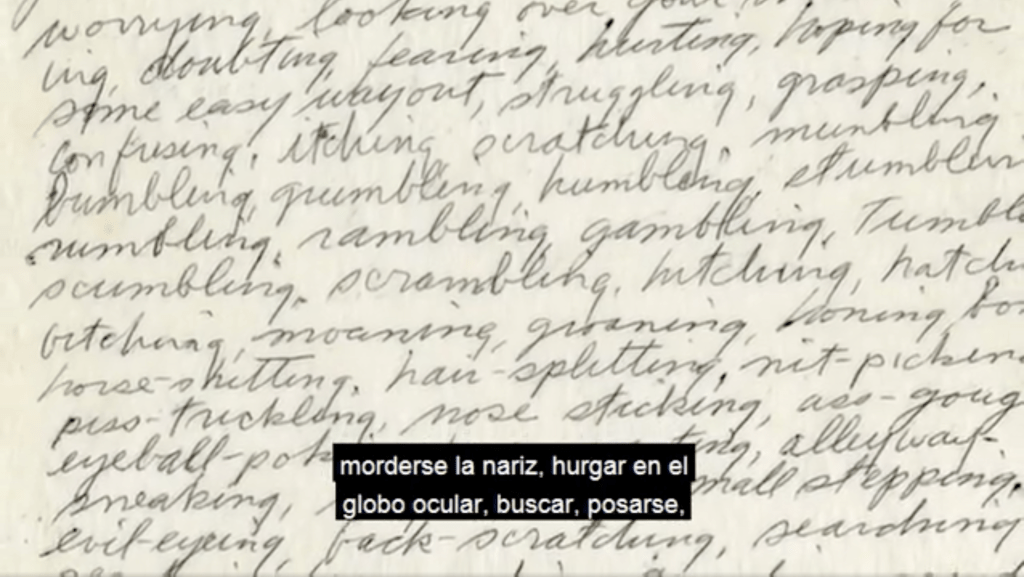 worrying, looking over your
ing, doubting, fearing, hurting, hoping for
some easy way out, struggling, grasping,
confusing, itching, scratching, mumbling
bumbling, grumbling, humbling, stumblin
rumbling, rambling, gambling, Tumbl
scumbling, scrambling, hitching, hatch
bitching, moaning, groaning, honing, bo
horse-shitting, hair-splitting, nit-pickin
piss-trickling, nose sticking, ass-goug
eyeball-pok ting, alleyway-
sneaking, mall stepping,
evil-eyeing, back-scratching, searching
morderse la nariz, hurgar en el
globo ocular, buscar, posarse,